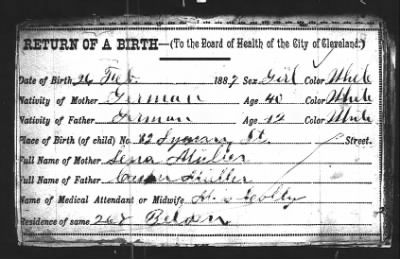 RETURN OF A BIRTH—(To the Board of Health of the City of Cleveland.)
Date of Birth 26 Feb. 1887 Sex Girl Color White
Nativity of Mother German Age 40 Color White
Nativity of Father German Age 42 Color White
Place of Birth (of child) No. 82 St. Street.
Full Name of Mother Lena
Full Name of Father
Name of Medical Attendant or Midwife
Residence of same 264